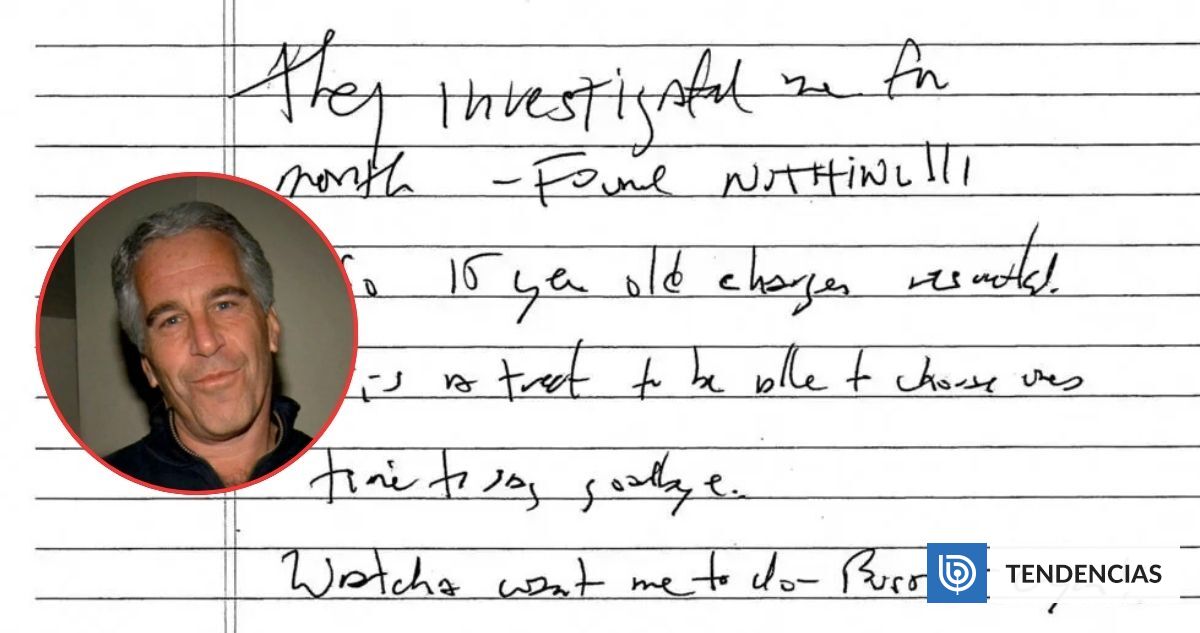 They investigated me for
month - Found NOTHING!!!
15 year old charges resulted.
is a treat to be able to choose ones
time to say goodbye.
Watcha want me to do -
TENDENCIAS